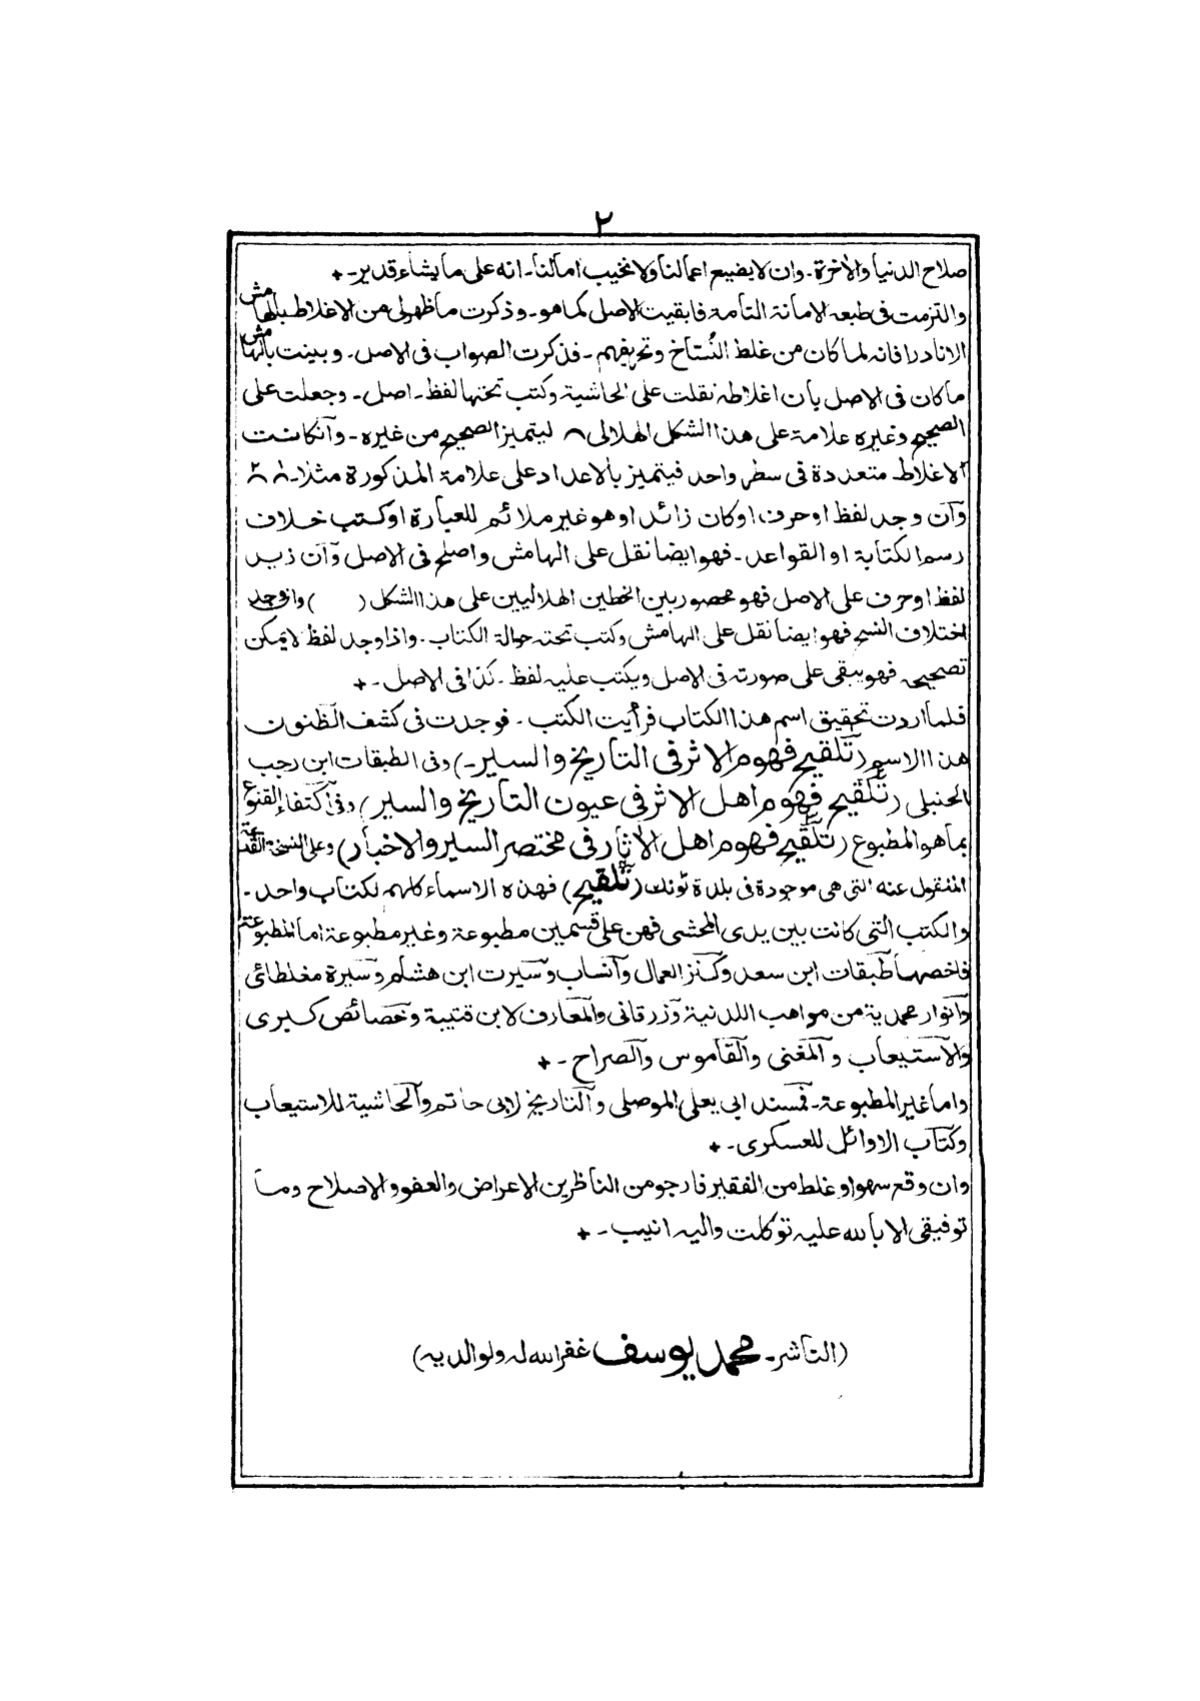 ٢
صلاح الدنيا والاخرة ـ وان لا يضيع اعمالنا ولا نخيب امالنا ـ انه على ما يشاء قدير ـ +
والتزمت فى طبعه الامانة التامة فابقيت الاصل كما هو ـ وذكرت ما ظهرلى من الاغلاط بالهامش
الا نادرا فانه لما كان من غلط النُسّاخ وتحريفهم ـ فذكرت الصواب فى الاصل ـ وبينت بالهامش
ما كان فى الاصل بان اغلاطه نقلت على الحاشية وكتب تحتها لفظ ـ اصل ـ وجعلت على
الصحيح وغيره علامة على هذا الشكل الهلالى ؍ ليتميز الصحيح من غيره ـ وآنكانت
الاغلاط متعددة فى سطر واحد فيتميز بالاعداد على علامة المذكورة مثلا ـ
وآن وجد لفظ او حرف او كان زائد او هو غير ملائم للعبارة او كتب خلاف
رسم الكتابة او القواعد ـ فهو ايضا نقل على الهامش واصلح فى الاصل وآن زيد
لفظ او حرف على الاصل فهو محصور بين الخطين الهلاليين على هذا الشكل (    ) وان وجد
اختلاف النسخ فهو ايضا نقل على الهامش وكتب تحته حوالة الكتاب ـ واذا وجد لفظ لا يمكن
تصحيحه فهو يبقى على صورته فى الاصل ويكتب عليه لفظ ـ كذا فى الاصل ـ +
فلما اردت تحقيق اسم هذا الكتاب فرأيت الكتب ـ فوجدت فى كشف الظنون
هذا الاسم (تلقيح فهوم الاثر فى التاريخ والسير ـ) وفى الطبقات ابن رجب
الحنبلى (تلقيح فهوم اهل الاثر فى عيون التاريخ والسير) وفى آكتفاء القنوع
بما هو المطبوع (تلقيح فهوم اهل الآثار فى مختصر السير والاخبار) وعلى النسخة القديمة
المنقول عنه التى هى موجودة فى بلدة ٹونك (تلقيح) فهذه الاسماء كلهم لكتاب واحد ـ
والكتب التى كانت بين يدى المحشى فهن على قسمين مطبوعة وغير مطبوعة اما المطبوعة
فاخصها طبقات ابن سعد وكنز العمال وآنساب وسيرت ابن هشام وسيرة مغلطائى
وآنوار محمدية من مواهب اللدنية وزرقانى والمعارف لابن قتيبة وخصائص كبرى
والآستيعاب وآلمغنى وآلقاموس وآلصراح ـ +
واما غير المطبوعة ـ فمسند ابى يعلى الموصلى وآلتاريخ لابى حاتم وآلحاشية للاستيعاب
وكتاب الاوائل للعسكرى ـ +
وان وقع سهو او غلط من الفقير فارجو من الناظرين الاعراض والعفو والاصلاح وما
توفيقى الا بالله عليه توكلت واليه انيب ـ +
(الناشر ـ محمد يوسف غفر الله له ولوالديه)